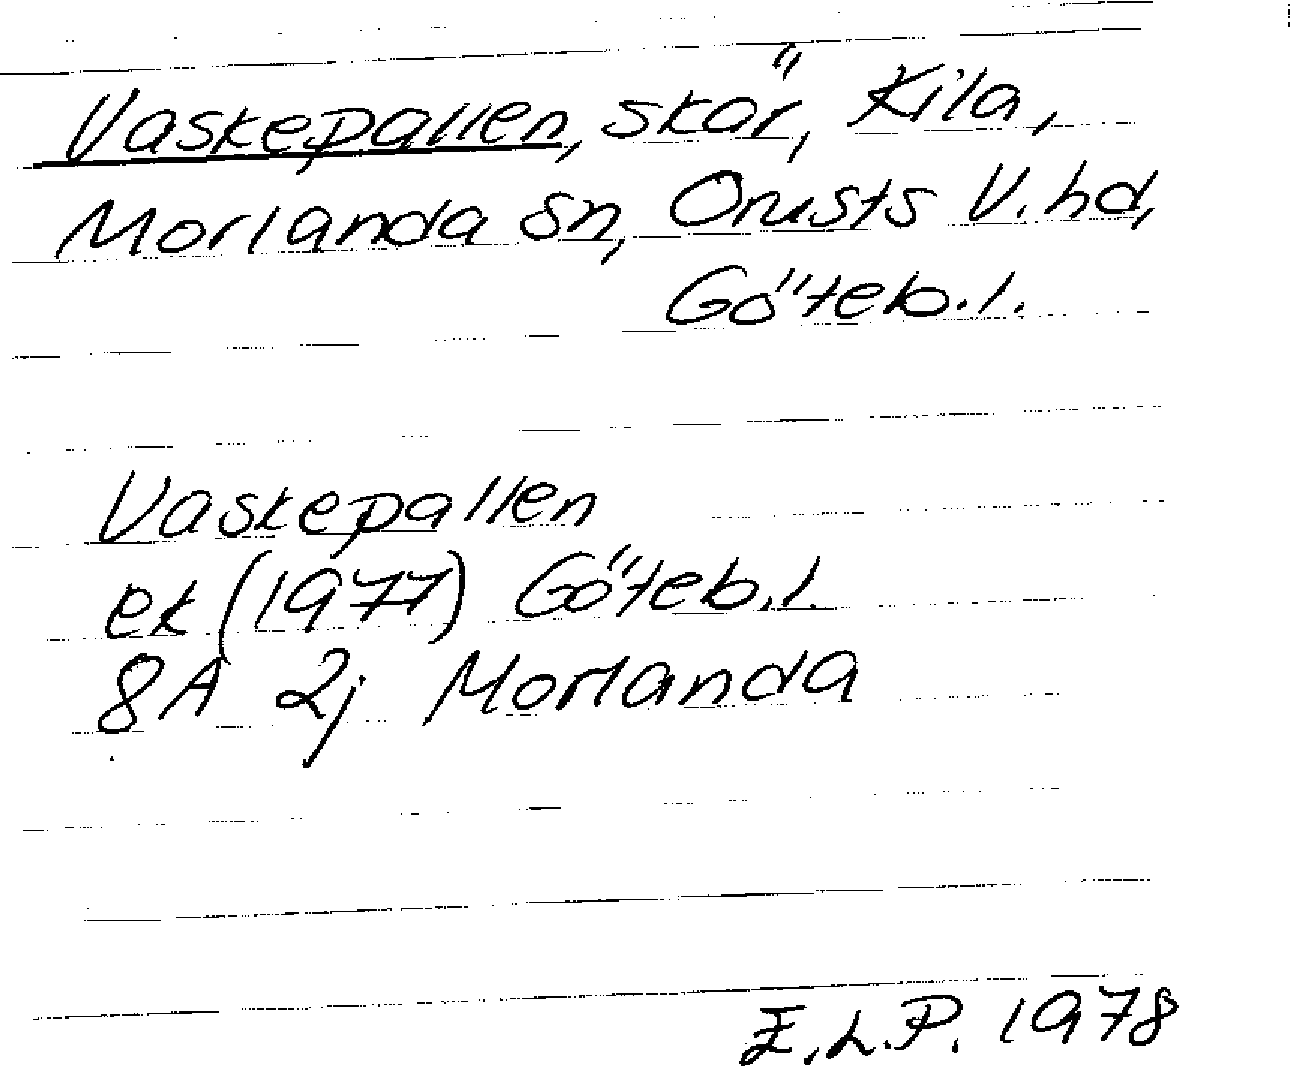 Vaskepallen, skär, Kila,
Morlanda sn, Orusts V. hd,
Göteb. l.
Vaskepallen
ek (1977) Göteb. l.
8A 2j Morlanda
E.L.P. 1978